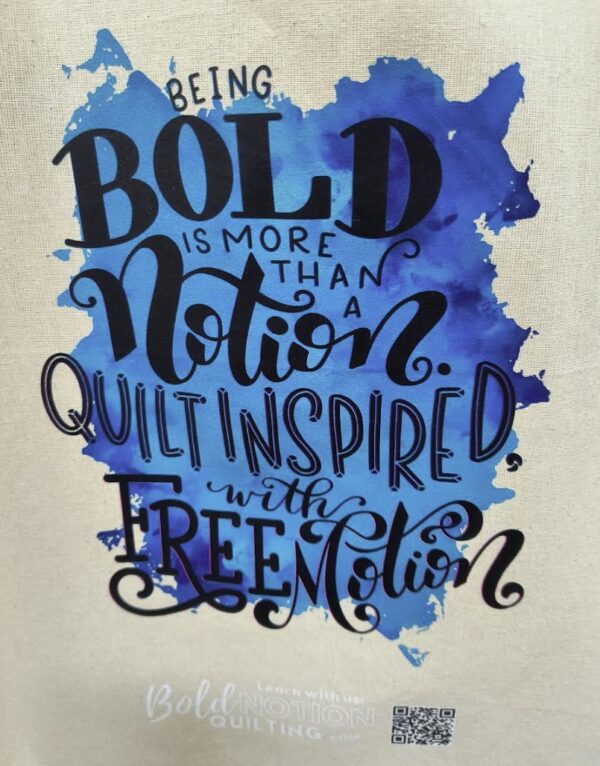 BEING
BOLD
IS MORE
THAN
A
Notion.
QUILT INSPIRED,
with
FREE Motion
Learn with us:
Bold NOTION
QUILTING .com